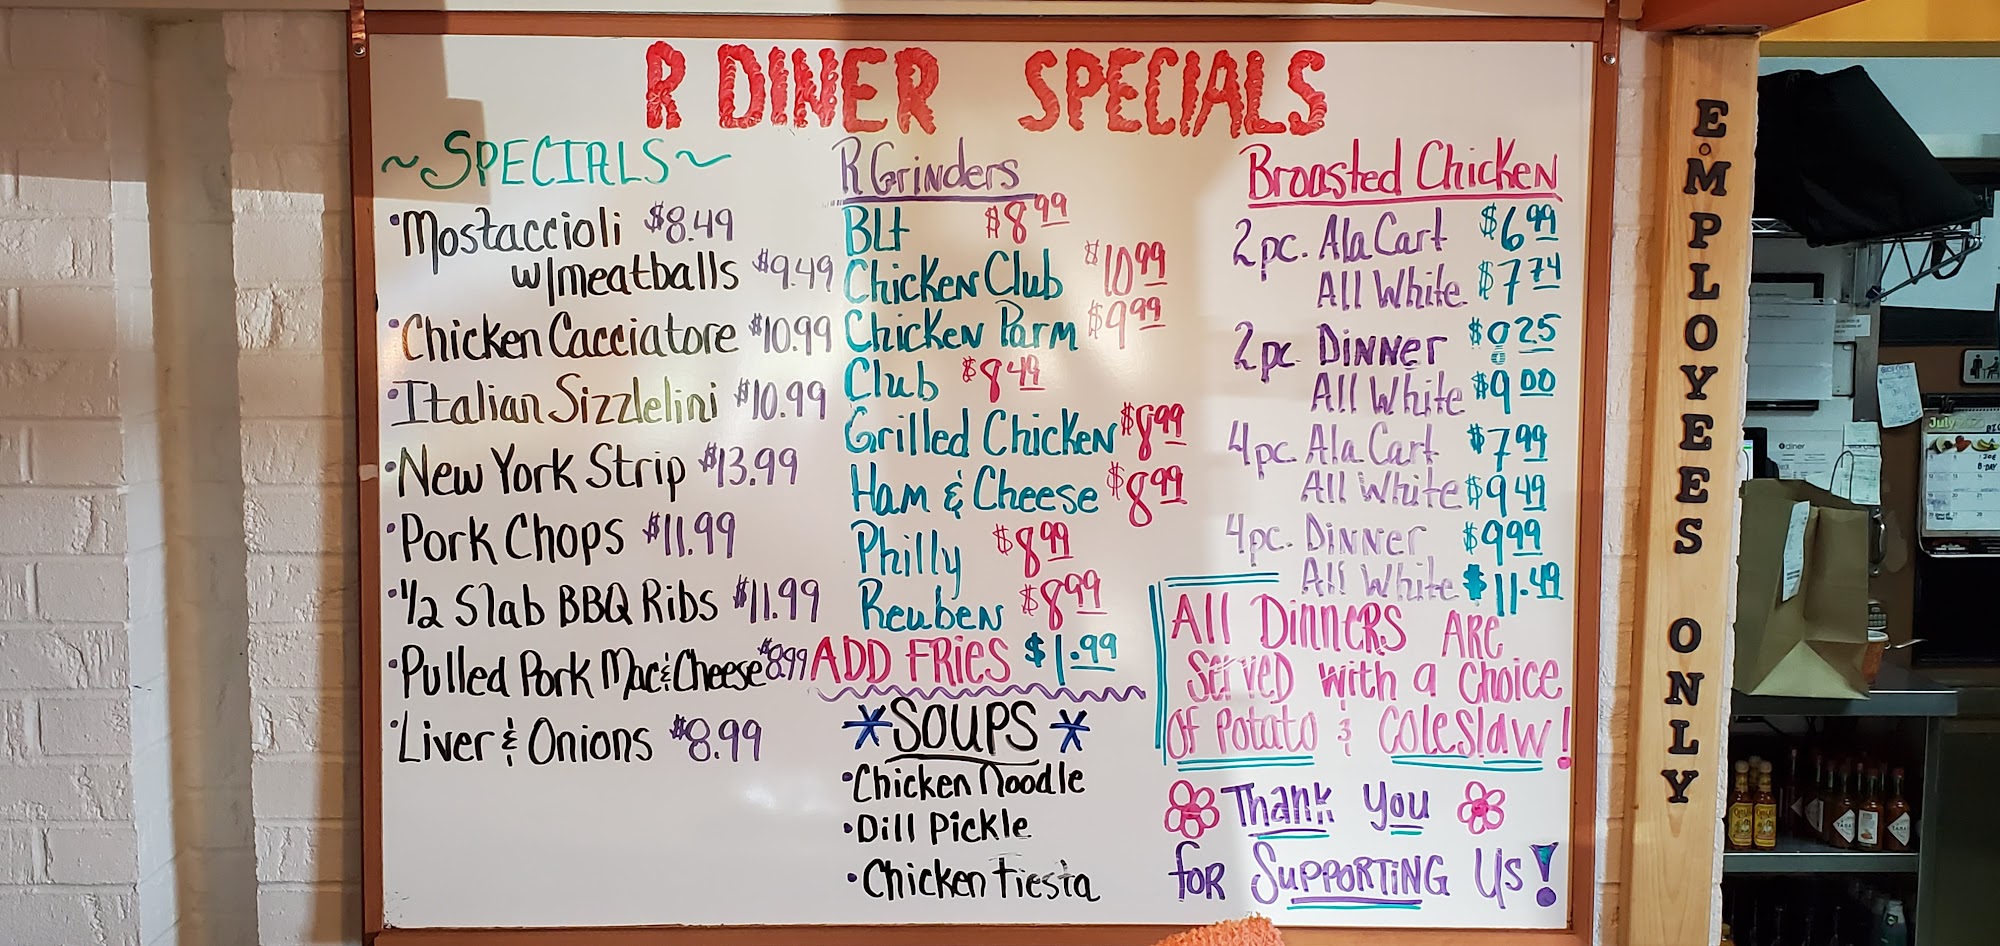 R DINER SPECIALS
~SPECIALS~
•Mostaccioli $8.49
w/meatballs $9.49
•Chicken Cacciatore $10.99
•Italian Sizzlelini $10.99
•New York Strip $13.99
•Pork Chops $11.99
•1/2 Slab BBQ Ribs $11.99
•Pulled Pork Mac & Cheese $8.99
•Liver & Onions $8.99
R Grinders
BLt $8.99
Chicken Club $10.99
Chicken Parm $9.99
Club $8.49
Grilled Chicken $8.99
Ham & Cheese $8.99
Philly $8.99
Reuben $8.99
ADD FRIES $1.99
*SOUPS*
•Chicken Noodle
•Dill Pickle
•Chicken Fiesta
Broasted Chicken
2pc. Ala Cart $6.99
All White $7.74
2pc. Dinner
All White $9.00
4pc. Ala Cart $7.99
All White $9.49
4pc. Dinner $9.99
All White $11.49
All Dinners Are
Served with a Choice
Of Potato & Coleslaw!
Thank You
for Supporting Us!
EMPLOYEES ONLY
July
JOE
B-DAY
diner